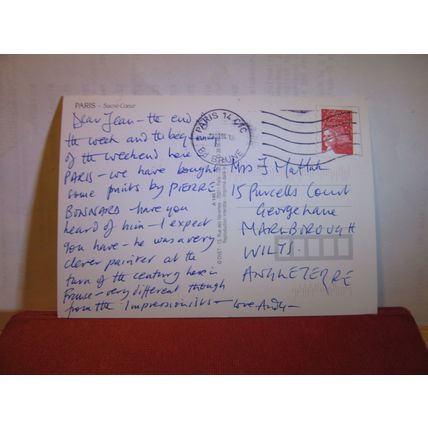 PARIS - Sacré-Coeur
Dear Jean - the end of
the week and the beg
of the weekend here
PARIS - we have bought
some prints by PIERRE
BONNARD - have you
heard of him - I expect
you have - he was a very
clever painter at the
turn of the century here in
France - very different though
from the Impressionists - love Andy -
PARIS 14 CTC
Bd BRUNE
Mrs J
15 Purcells Court
George Lane
MARLBOROUGH
WILTS
ANGLETERRE